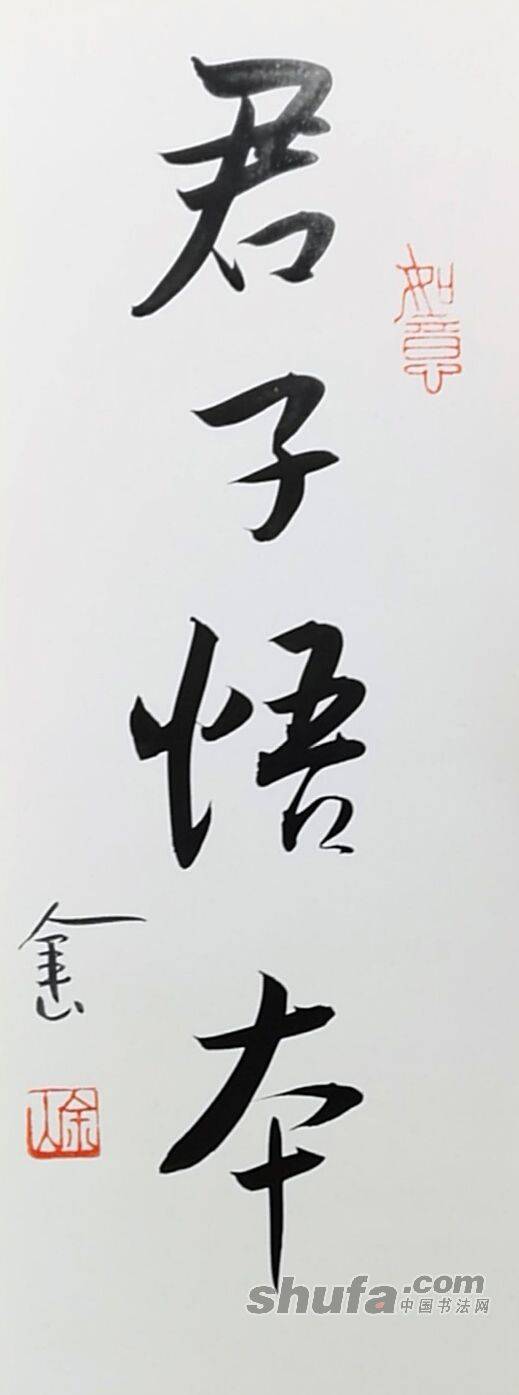 君子悟本
如意
余山
shufa.com
中国书法网